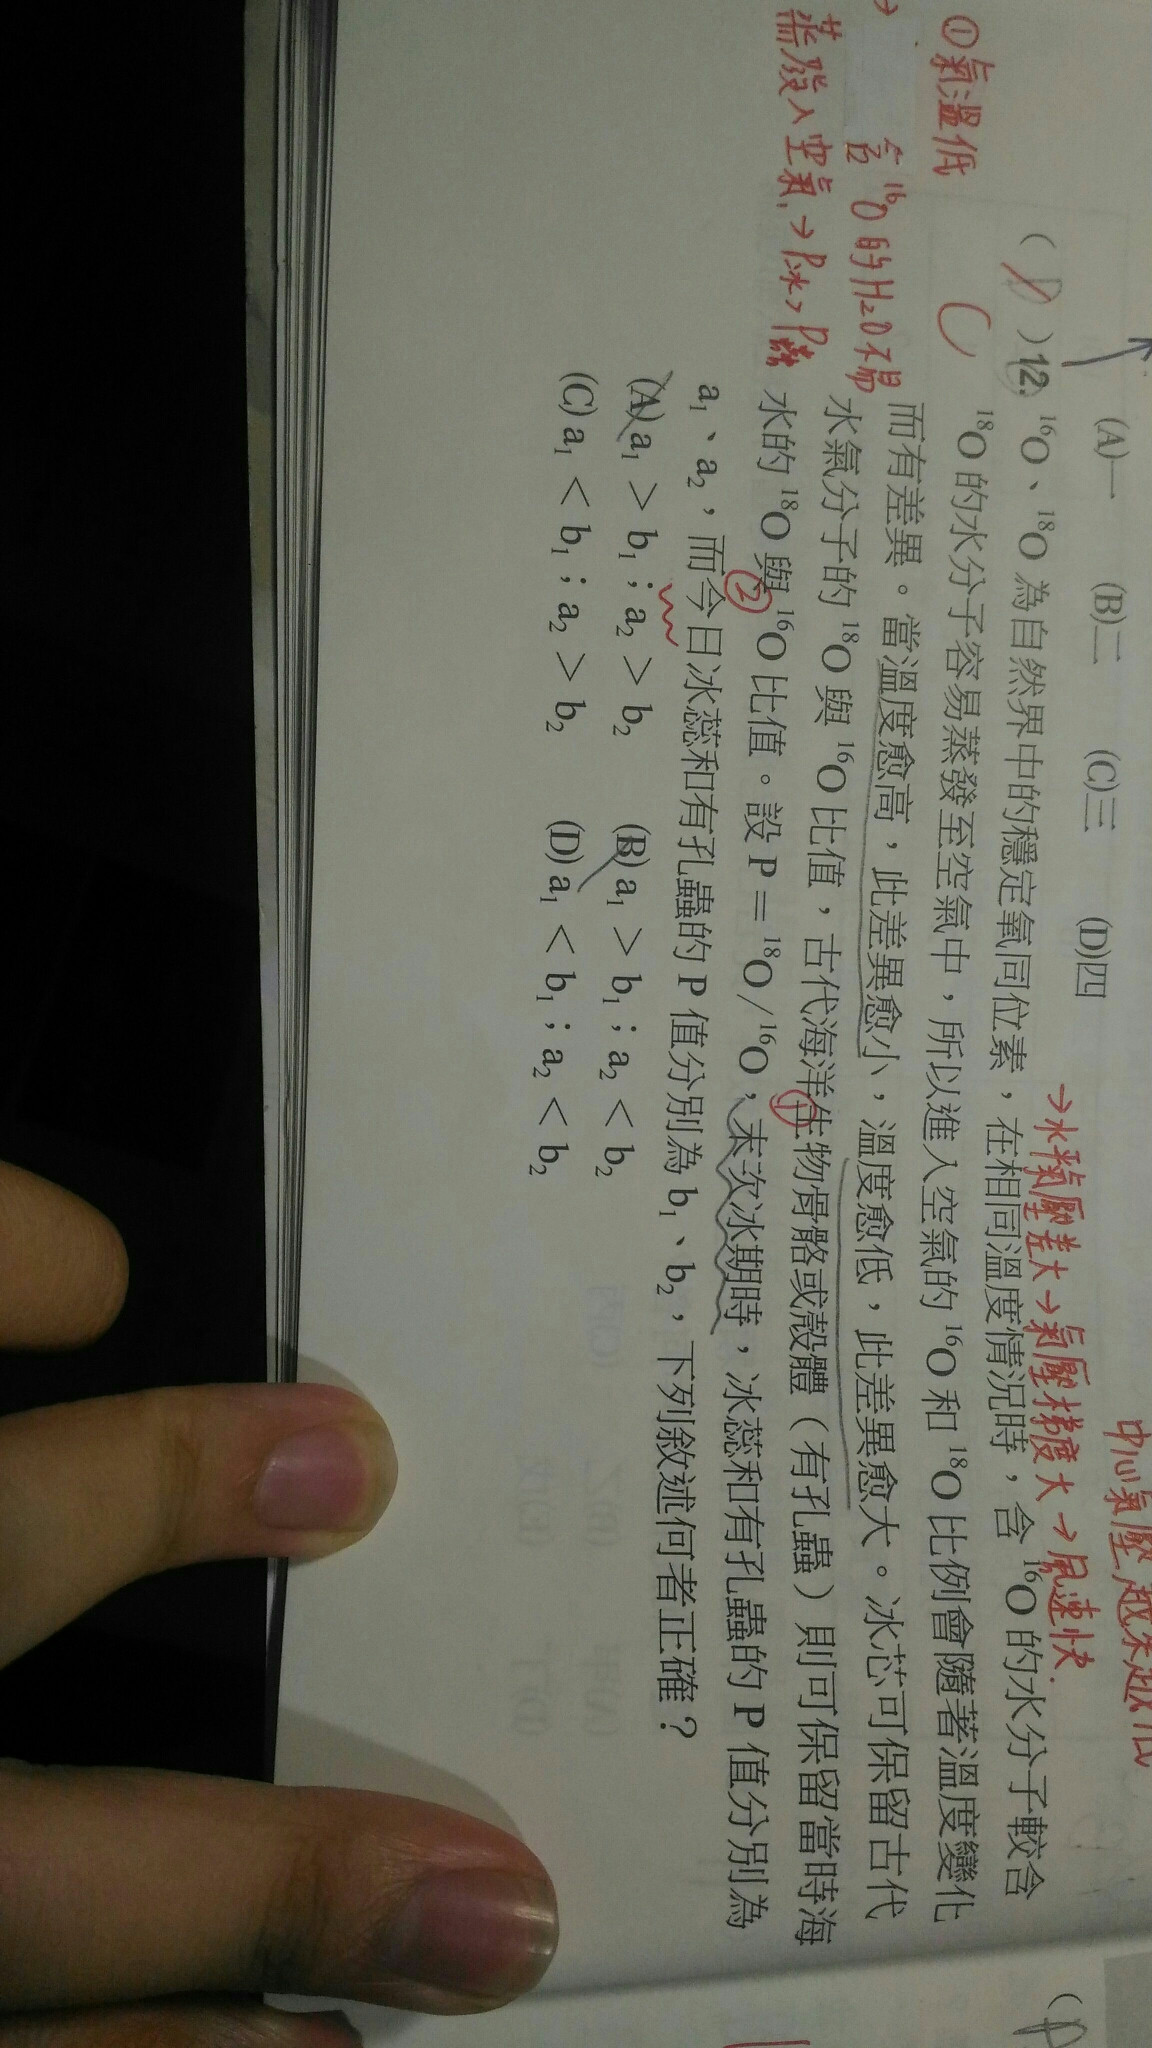 中心氣壓越來越低
→水平氣壓差大→氣壓梯度大→風速快.
(A)一 (B)二 (C)三 (D)四
(D)12. ¹⁶O、¹⁸O 為自然界中的穩定氧同位素，在相同溫度情況時，含 ¹⁶O 的水分子較含
¹⁸O 的水分子容易蒸發至空氣中，所以進入空氣的 ¹⁶O 和 ¹⁸O 比例會隨著溫度變化
而有差異。當溫度愈高，此差異愈小，溫度愈低，此差異愈大。冰芯可保留古代
水氣分子的 ¹⁸O 與 ¹⁶O 比值，古代海洋生物骨骼或殼體（有孔蟲）則可保留當時海
水的 ¹⁸O 與 ¹⁶O 比值。設 P＝¹⁸O/¹⁶O，末次冰期時，冰蕊和有孔蟲的 P 值分別為
a₁、a₂，而今日冰蕊和有孔蟲的 P 值分別為 b₁、b₂，下列敘述何者正確？
(A) a₁ > b₁；a₂ > b₂ (B) a₁ > b₁；a₂ < b₂
(C) a₁ < b₁；a₂ > b₂ (D) a₁ < b₁；a₂ < b₂
C
①氣溫低
→ 含 ¹⁶O 的 H₂O 不易
蒸發入空氣,→
②
①